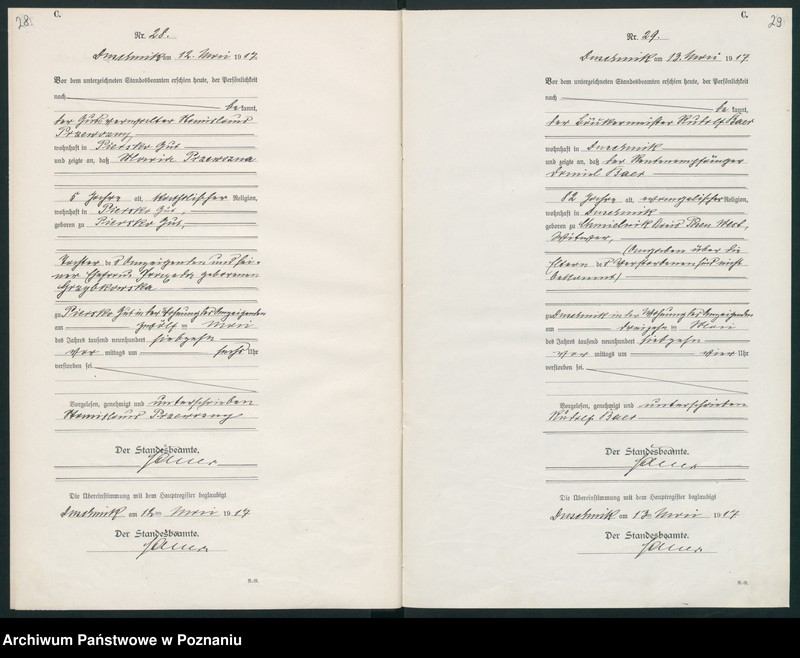 28.
C.
Nr. 28.
Duschnik am 12. Mai 1917.
Vor dem unterzeichneten Standesbeamten erschien heute, der Persönlichkeit
nach
be kannt,
der Gutsverwalter Stanislaus
wohnhaft in Piersko Gut
und zeigte an, daß Maria
5 Jahre alt, katholischer Religion,
wohnhaft in Piersko Gut,
geboren zu Piersko Gut,
Tochter des Anzeigenden und sei-
ner Ehefrau, geborenen
Grzybkowska
zu Piersko Gut in der Wohnung des Anzeigenden
am zwölften Mai
des Jahres tausend neunhundert siebzehn
vor mittags um sechs Uhr
verstorben sei.
Vorgelesen, genehmigt und unterschrieben
Stanislaus
Der Standesbeamte.
Die Übereinstimmung mit dem Hauptregister beglaubigt
Duschnik am 12ten Mai 1917
Der Standesbeamte.
C.
29
Nr. 29.
Duschnik am 13. Mai 1917.
Vor dem unterzeichneten Standesbeamten erschien heute, der Persönlichkeit
nach
be kannt,
der Bäckermeister Rudolf Baer
wohnhaft in Duschnik
und zeigte an, daß der Rentenempfänger
Daniel Baer
82 Jahre alt, evangelischer Religion,
wohnhaft in Duschnik
geboren zu Chmielnik Kreis Posen West,
Witwer,
(Angaben über die
Eltern des Verstorbenen sind nicht
bekannt)
zu Duschnik in der Wohnung des Anzeigenden
am dreizehnten Mai
des Jahres tausend neunhundert siebzehn
vor mittags um vier Uhr
verstorben sei.
Vorgelesen, genehmigt und unterschrieben
Rudolf Baer
Der Standesbeamte.
Die Übereinstimmung mit dem Hauptregister beglaubigt
Duschnik am 13ten Mai 1917
Der Standesbeamte.
Archiwum Państwowe w Poznaniu